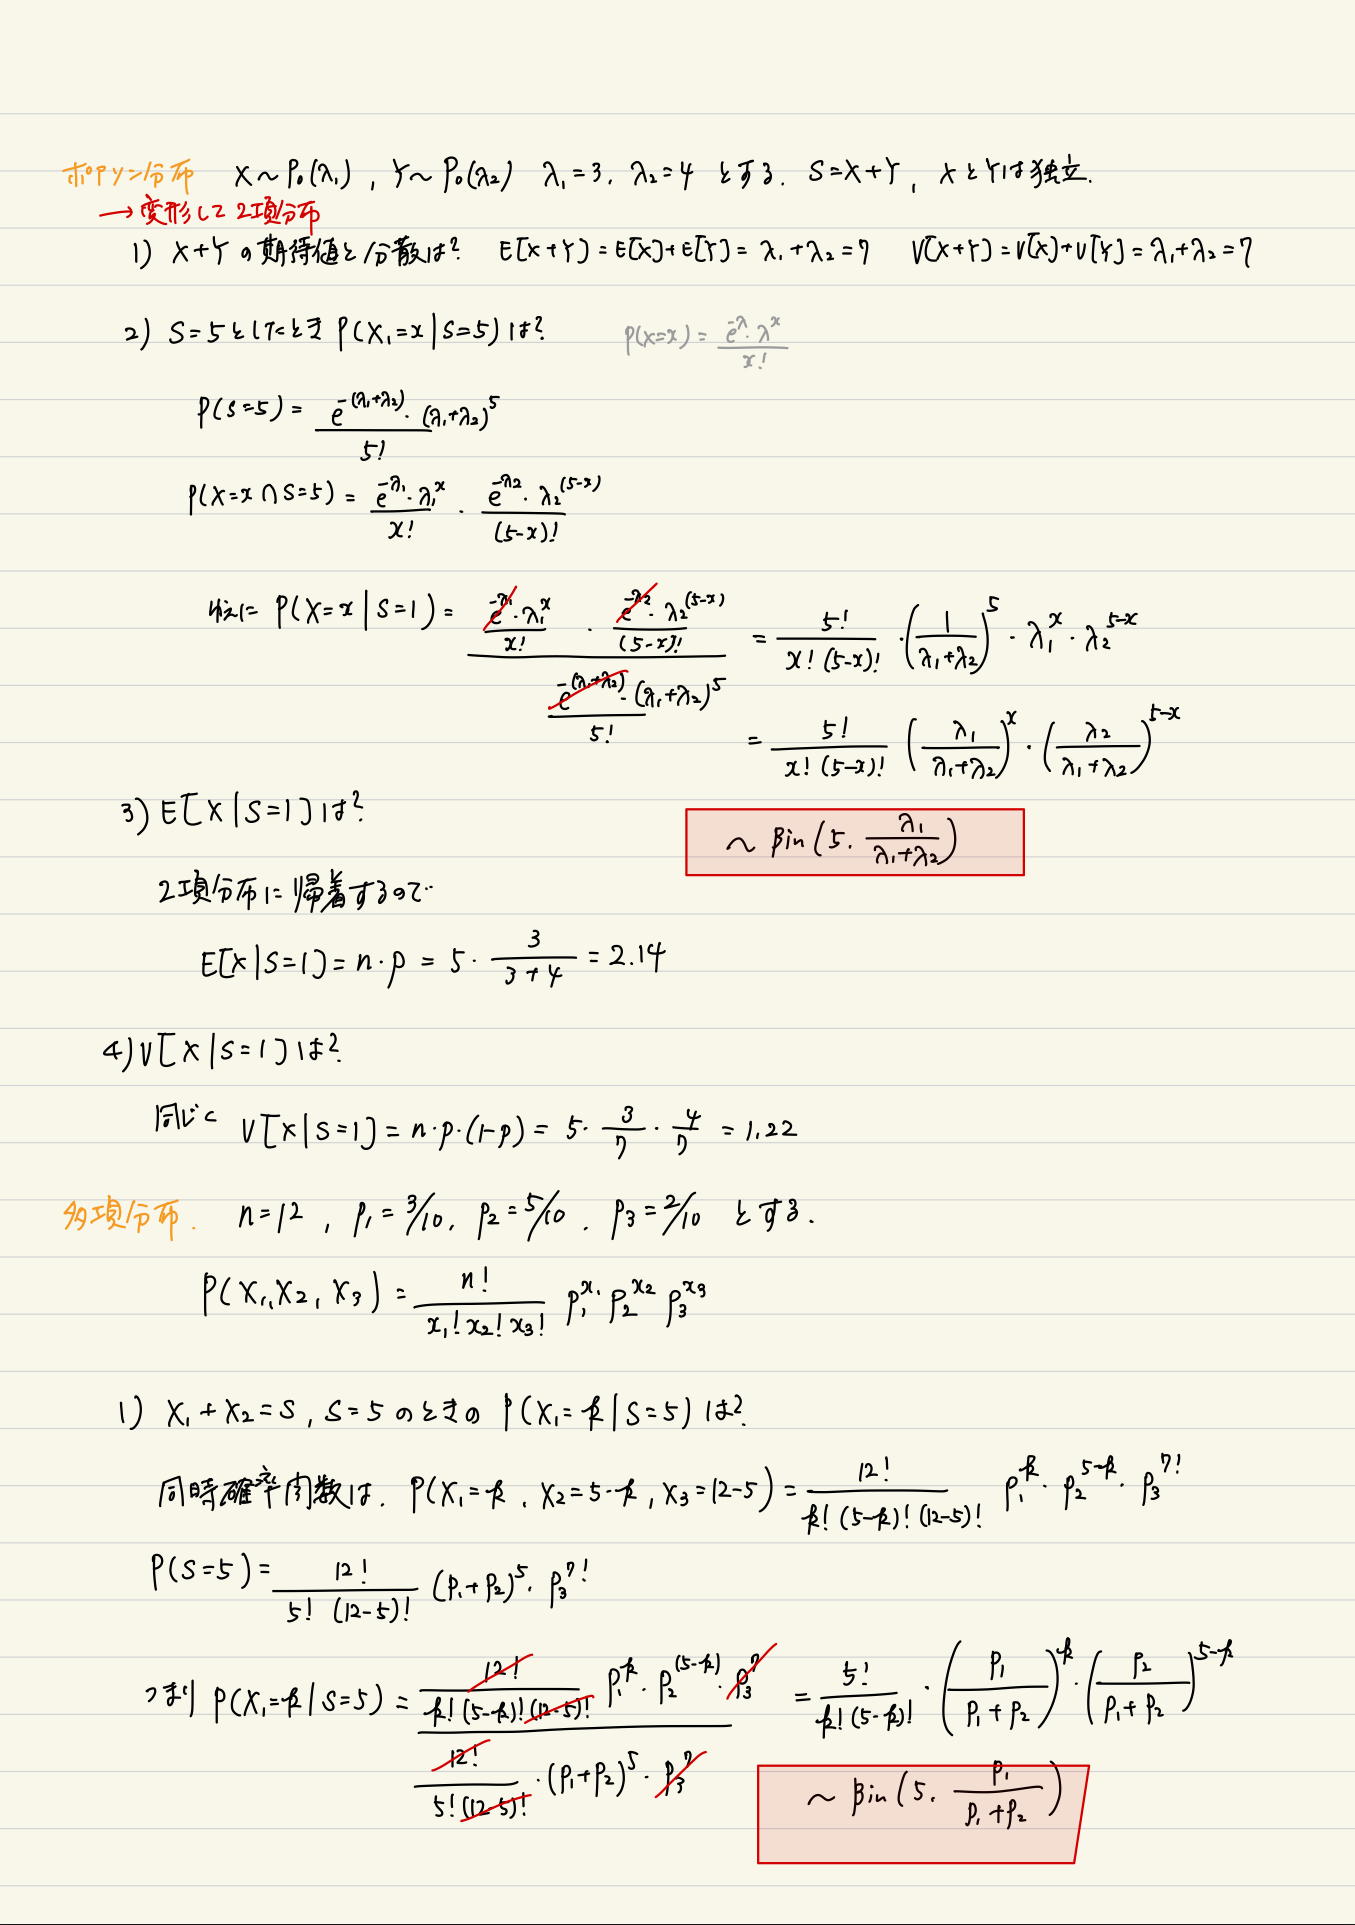 ポアソン分布 X~Po(λ₁), Y~Po(λ₂) λ₁=3, λ₂=4 とする. S=X+Y, XとYは独立.
→変形して2項分布
1) X+Yの期待値と分散は? E[X+Y]=E[X]+E[Y]=λ₁+λ₂=7 V[X+Y]=V[X]+V[Y]=λ₁+λ₂=7
2) S=5としたとき P(X₁=x|S=5)は? P(X=x)=e^{-λ}·λ^x / x!
P(S=5)= e^{-(λ₁+λ₂)}·(λ₁+λ₂)^5 / 5!
P(X=x∩S=5)= e^{-λ₁}·λ₁^x / x! · e^{-λ₂}·λ₂^{(5-x)} / (5-x)!
ゆえに P(X=x|S=1)= (e^{-λ₁}·λ₁^x / x! · e^{-λ₂}·λ₂^{(5-x)} / (5-x)!) / (e^{-(λ₁+λ₂)}·(λ₁+λ₂)^5 / 5!) = 5! / x!(5-x)! · (1 / λ₁+λ₂)^5 · λ₁^x · λ₂^{5-x}
= 5! / x!(5-x)! (λ₁ / λ₁+λ₂)^x · (λ₂ / λ₁+λ₂)^{5-x}
~ Bin(5, λ₁ / λ₁+λ₂)
3) E[X|S=1]は?
2項分布に帰着するので
E[X|S=1]=n·p = 5· 3 / 3+4 = 2.14
4) V[X|S=1]は?
同じく V[X|S=1]=n·p·(1-p)= 5· 3/7 · 4/7 = 1.22
多項分布. n=12, p₁=3/10, p₂=5/10, p₃=2/10 とする.
P(X₁,X₂,X₃)= n! / x₁!x₂!x₃! p₁^{x₁} p₂^{x₂} p₃^{x₃}
1) X₁+X₂=S, S=5のときの P(X₁=k|S=5)は?
同時確率関数は, P(X₁=k, X₂=5-k, X₃=12-5)= 12! / k!(5-k)!(12-5)! p₁^k · p₂^{5-k} · p₃^{7!}
P(S=5)= 12! / 5!(12-5)! (p₁+p₂)^5 · p₃^{7!}
つまり P(X₁=k|S=5)= (12! / k!(5-k)!(12-5)! p₁^k · p₂^{(5-k)} · p₃^7) / (12! / 5!(12-5)! · (p₁+p₂)^5 · p₃^7) = 5! / k!(5-k)! · (p₁ / p₁+p₂)^k · (p₂ / p₁+p₂)^{5-k}
~ Bin(5, p₁ / p₁+p₂)